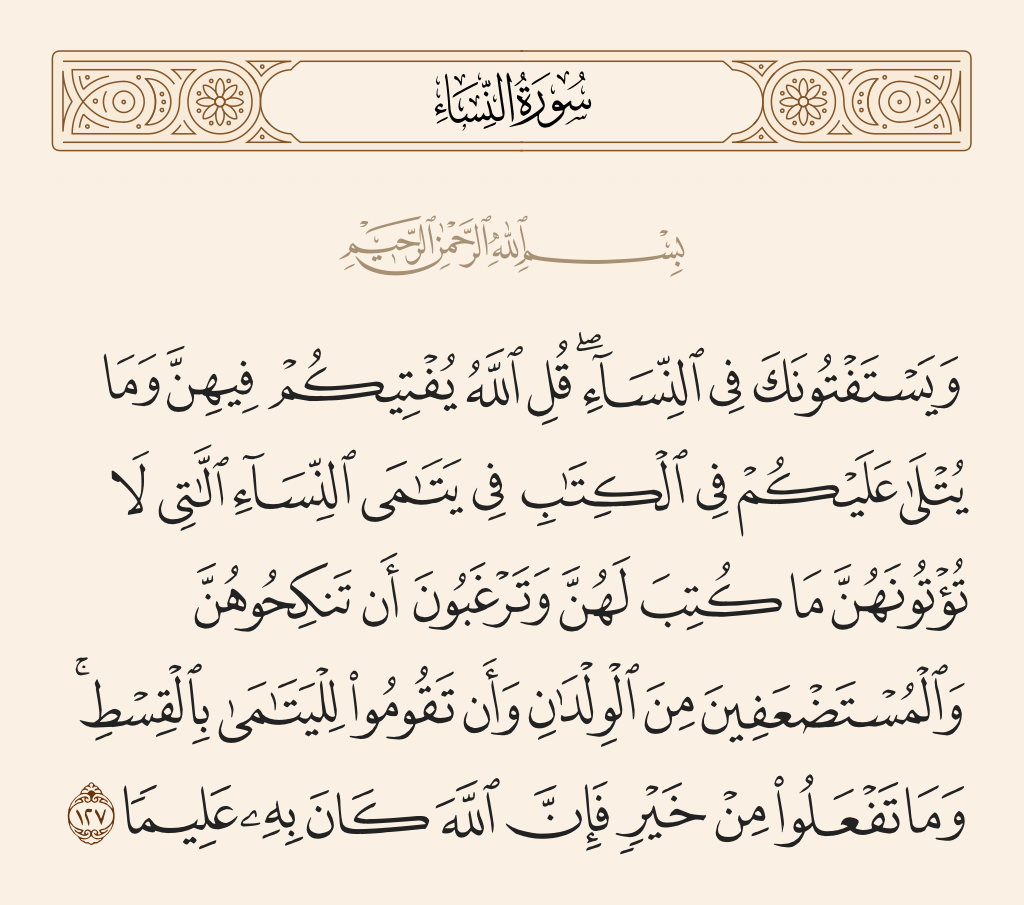 سُورَةُ النِّسَاءِ
بِسْمِ ٱللَّهِ ٱلرَّحْمَٰنِ ٱلرَّحِيمِ
وَيَسْتَفْتُونَكَ فِى ٱلنِّسَآءِ ۖ قُلِ ٱللَّهُ يُفْتِيكُمْ فِيهِنَّ وَمَا
يُتْلَىٰ عَلَيْكُمْ فِى ٱلْكِتَٰبِ فِى يَتَٰمَى ٱلنِّسَآءِ ٱلَّٰتِى لَا
تُؤْتُونَهُنَّ مَا كُتِبَ لَهُنَّ وَتَرْغَبُونَ أَن تَنكِحُوهُنَّ
وَٱلْمُسْتَضْعَفِينَ مِنَ ٱلْوِلْدَٰنِ وَأَن تَقُومُوا۟ لِلْيَتَٰمَىٰ بِٱلْقِسْطِ ۚ
وَمَا تَفْعَلُوا۟ مِنْ خَيْرٍ فَإِنَّ ٱللَّهَ كَانَ بِهِۦ عَلِيمًا ١٢٧